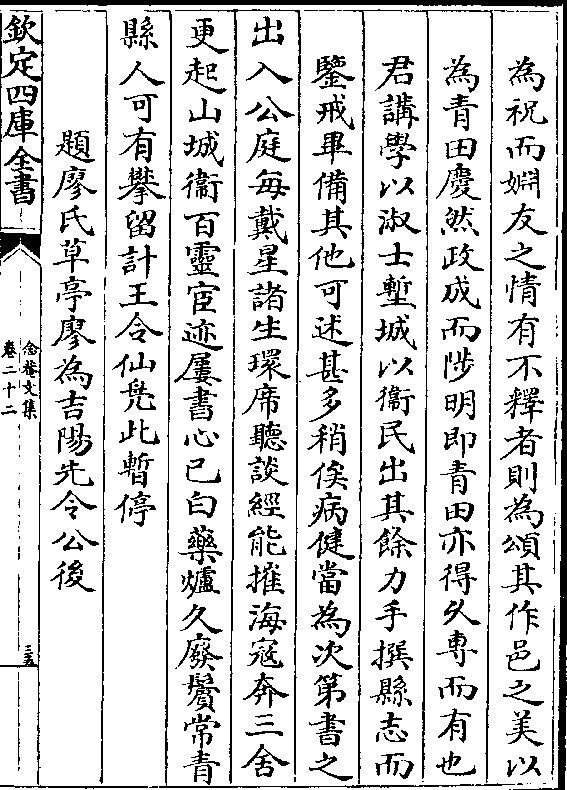 為祝而婣友之情有不釋者則為頌其作邑之美以
為青田慶然政成而陟明即青田亦得乆專而有也
君講學以淑士塹城以衞民出其餘力手撰縣志而
鑒戒畢備其他可述甚多稍俟病健當為次第書之
出入公庭每戴星諸生環席聽談經能摧海寇奔三舍
更起山城衞百靈宦迹屢書心已白藥爐久廢鬢常青
縣人可有攀留計王令仙鳬此暫停
題廖氏草亭廖為吉陽先令公後
欽定四庫全書
念菴文集
卷二十二
三五